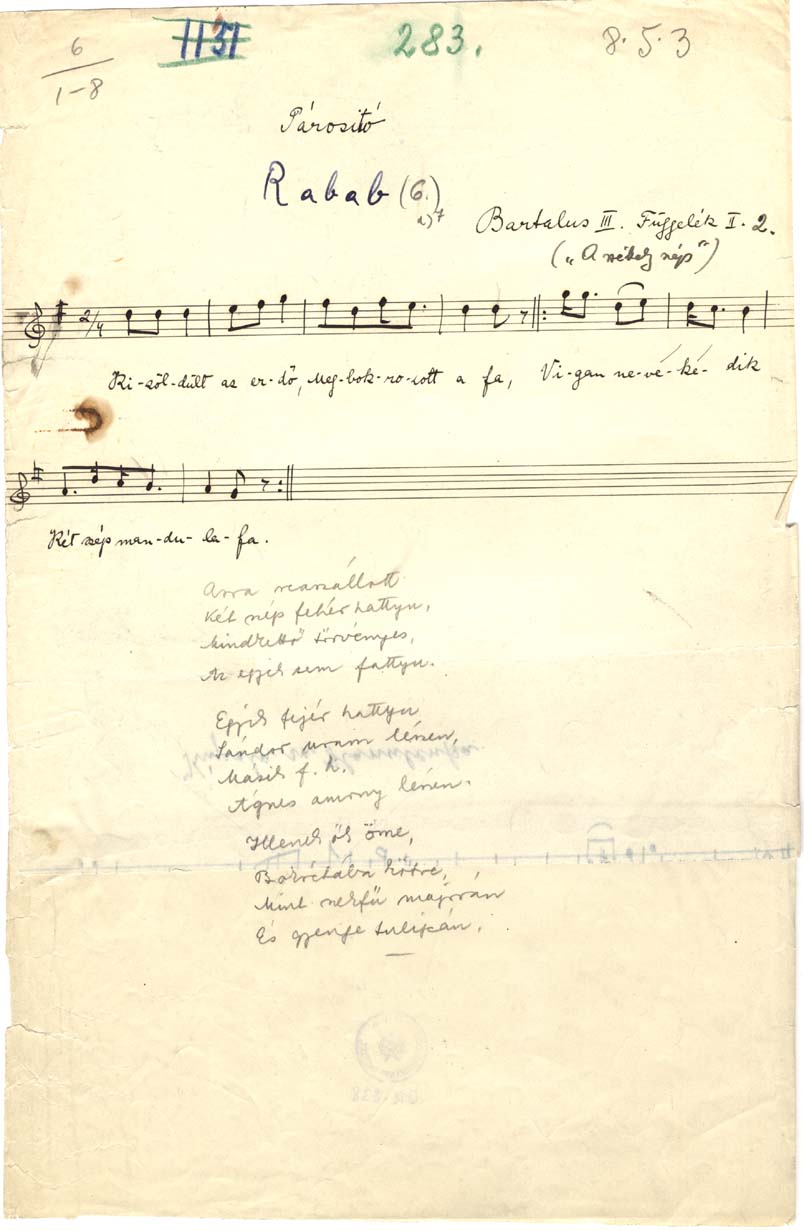 6
1-8
1131
283.
8.5.3
Párositó
Rabab (6.)
Bartalus III. Függelék I. 2.
("A székely nép")
2/4
Ki-zöl-dült az er-dő, Meg-bok-ro-zott a fa, Vi-gan ne-vé-ké-dik
Két szép man-du-la-fa.
Arra reászállott
Két szép fehér hattyu,
Mindkettő törvényes,
Az egyik sem fattyu.
Egyik fejér hattyu
Sándor uram lészen,
Másik f. h.
Ágnes asszony lészen.
Illenek ők öszve,
Bokrétába kötve,
Mint szekfü majorán
És gyenge tulipán.